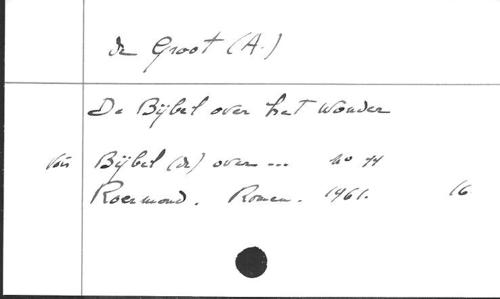 de Groot (A.)
De Bijbel over het wonder
Voir Bijbel (de) over --- no 11
Roermond. Romen. 1961. 16